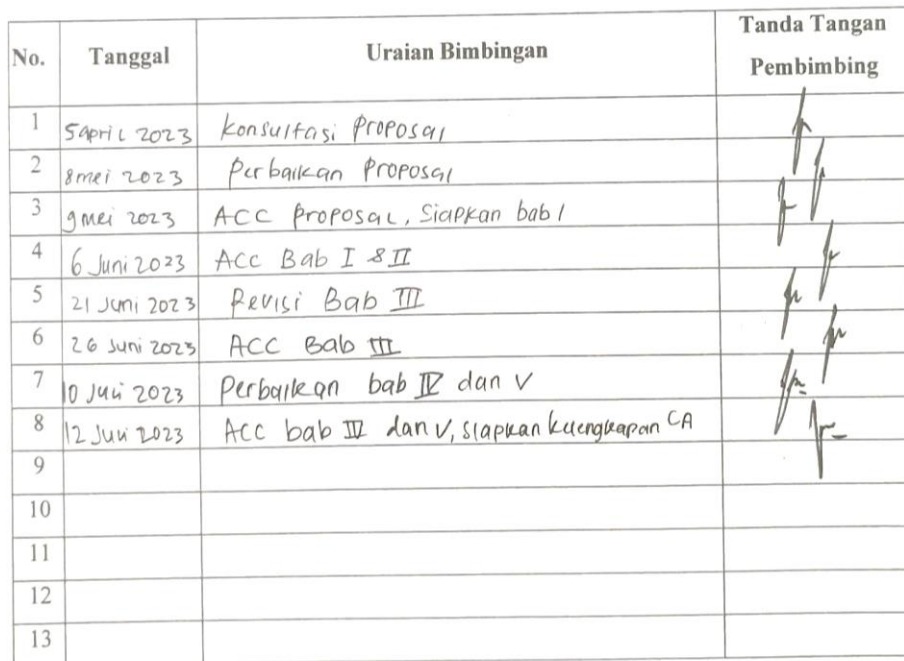 No. Tanggal Uraian Bimbingan Tanda Tangan Pembimbing
1 5 april 2023 Konsultasi Proposal
2 8 mei 2023 Perbaikan Proposal
3 9 mei 2023 ACC Proposal, Siapkan bab I
4 6 Juni 2023 ACC Bab I & II
5 21 Juni 2023 Revisi Bab III
6 26 Juni 2023 ACC Bab III
7 10 Juli 2023 Perbaikan bab IV dan V
8 12 Juli 2023 ACC bab IV dan V, siapkan kelengkapan CA
9
10
11
12
13